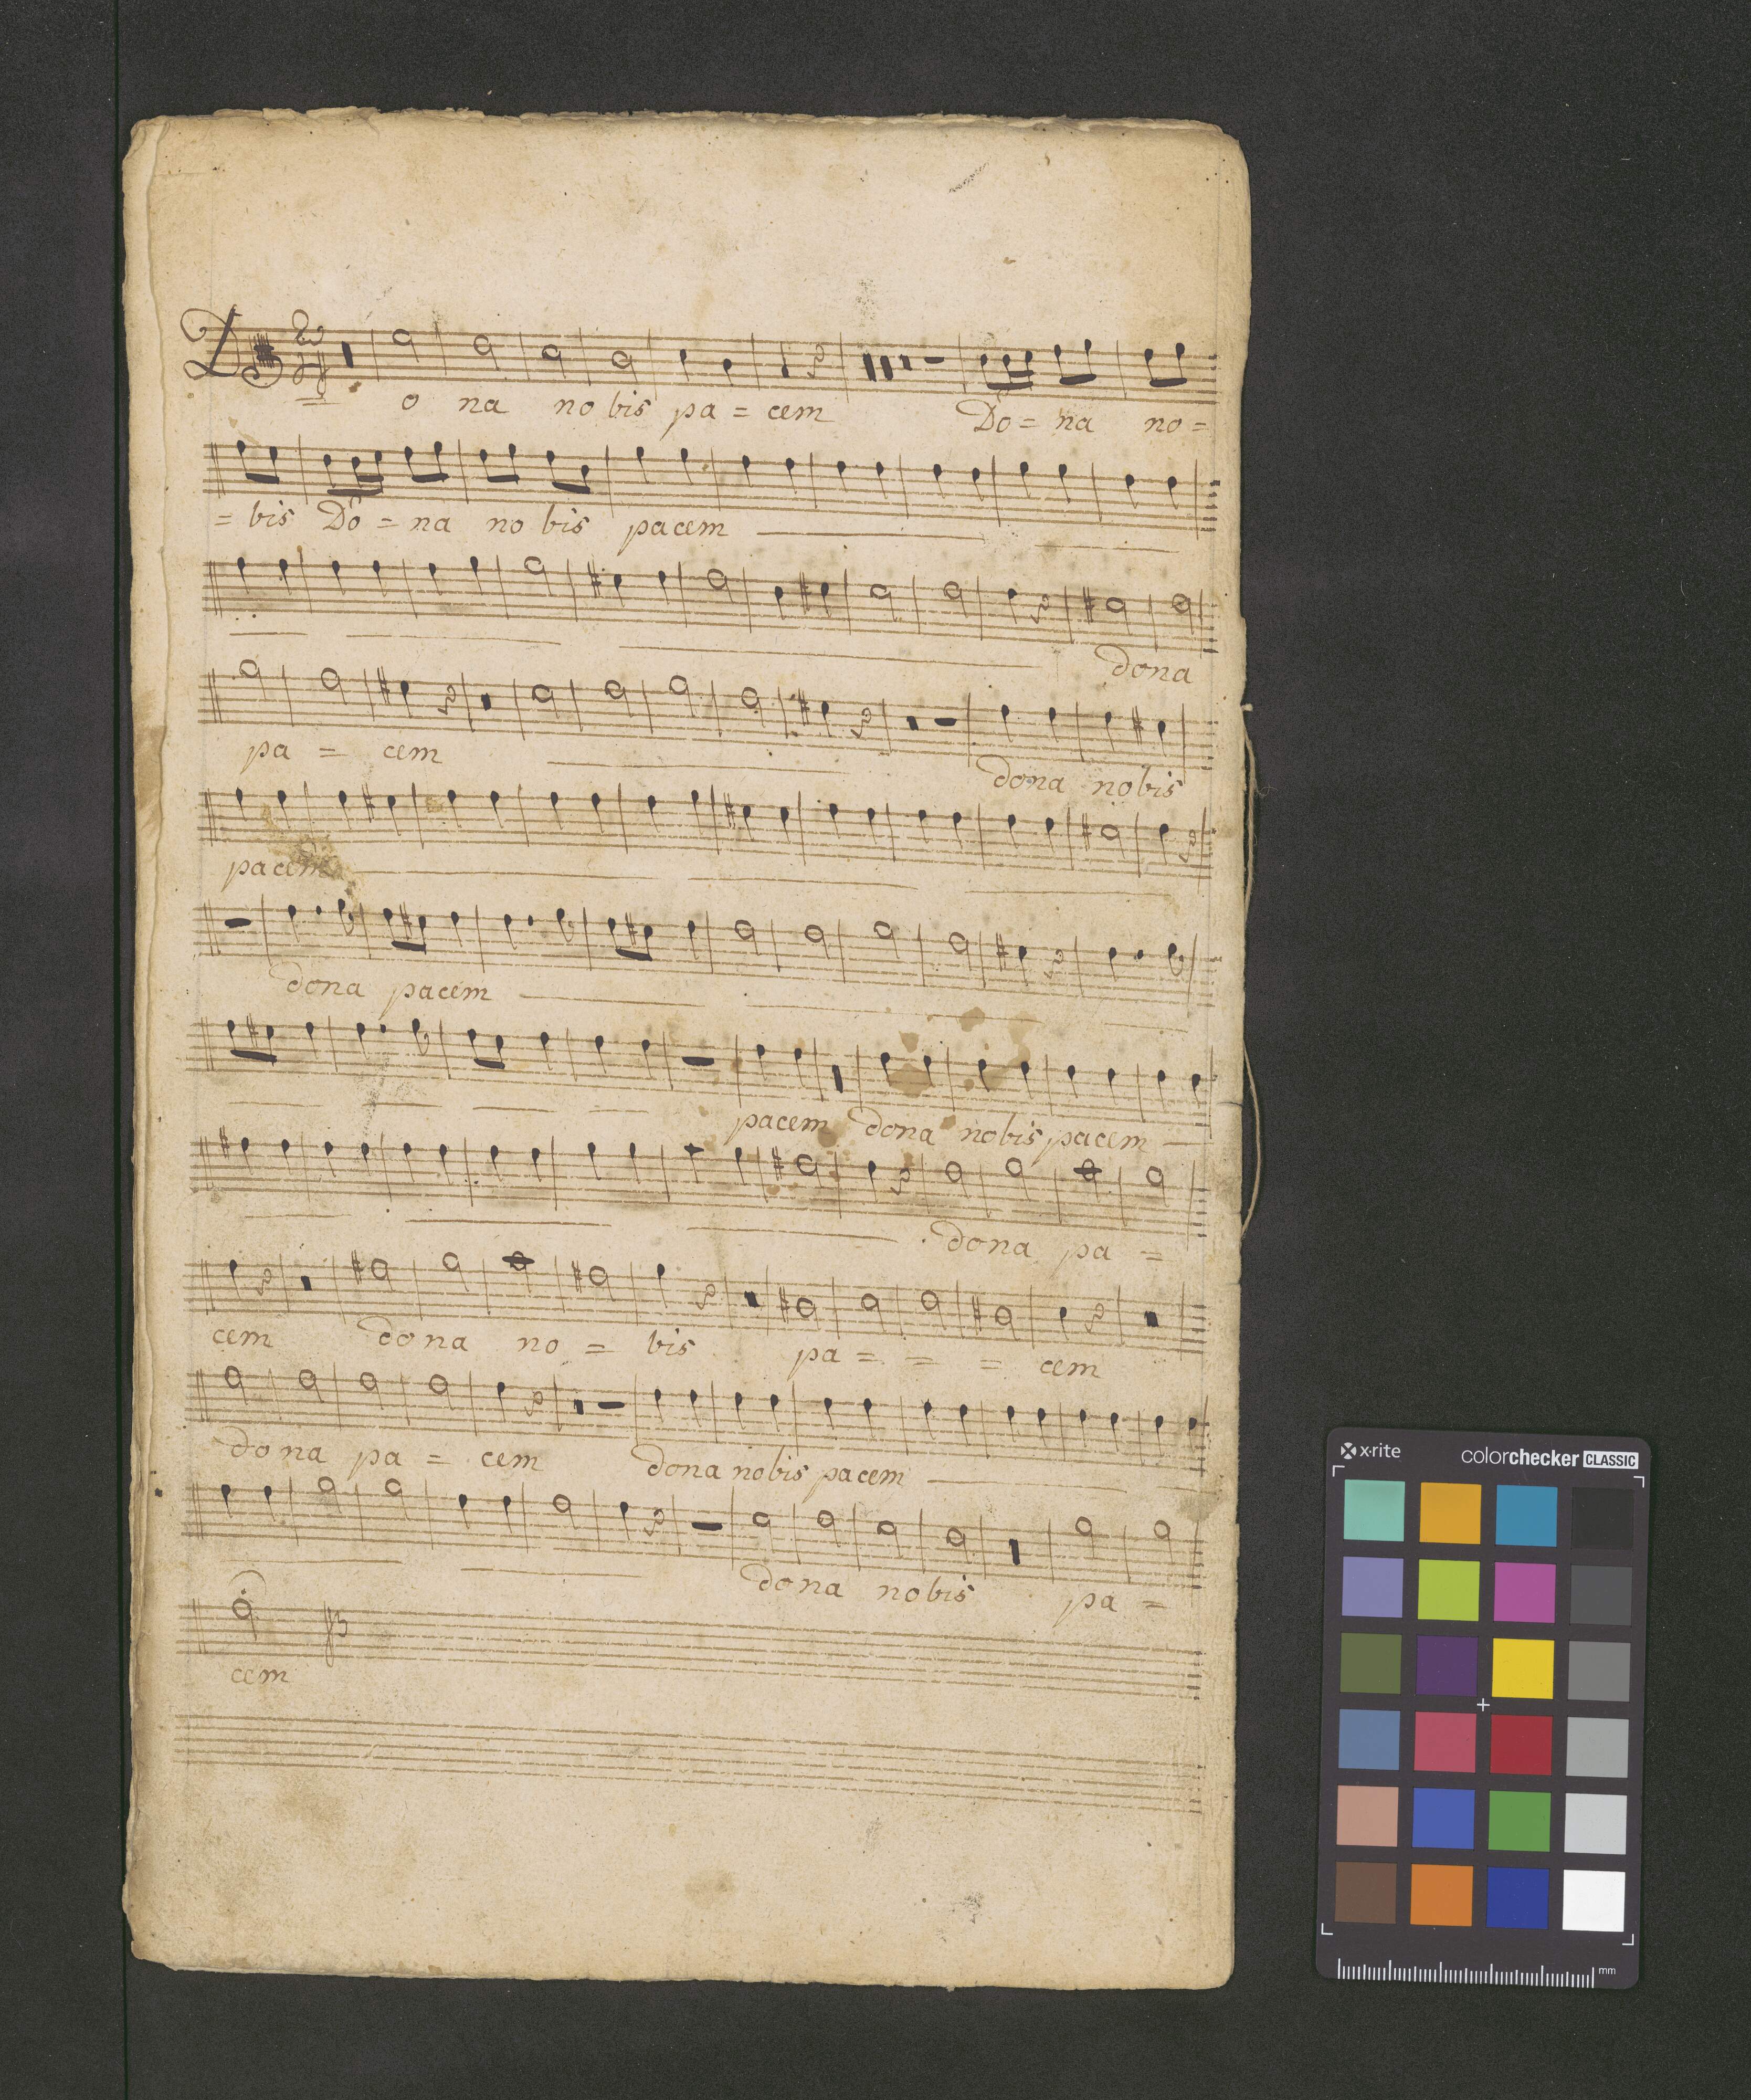 Do na no bis pa = cem Do = na no =
= bis Do = na no bis pacem
dona
pa = cem dona nobis
pacem
dona pacem
pacem dona nobis pacem
dona pa =
cem dona no = bis pa = = = cem
dona pa = cem dona nobis pacem
dona nobis pa =
cem
x-rite colorchecker CLASSIC
mm